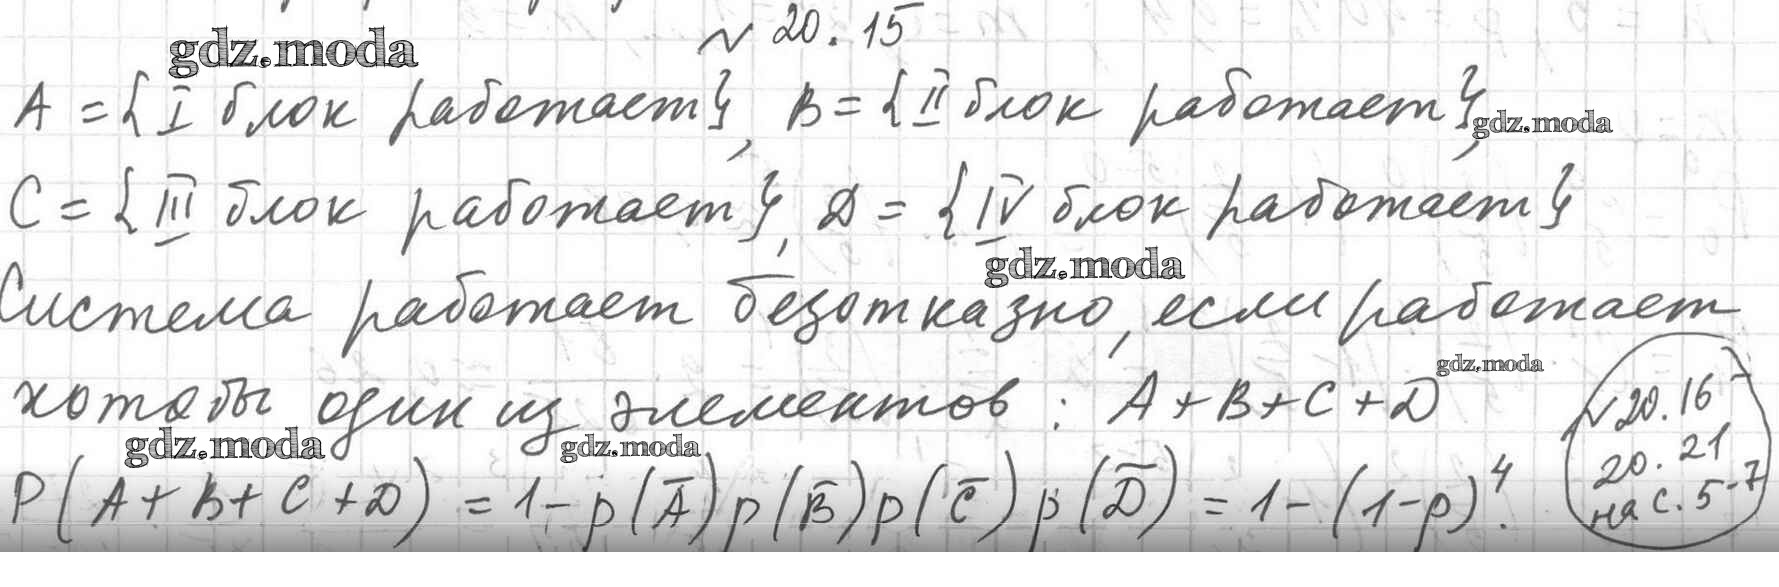 № 20.15
gdz.moda
A = {I блок работает}, B = {II блок работает},
gdz.moda
C = {III блок работает}, D = {IV блок работает}
gdz.moda
Система работает безотказно, если работает
gdz.moda
хотя бы один из элементов: A + B + C + D
№ 20.16 -
20.21
на с. 5-7
gdz.moda
gdz.moda
P(A + B + C + D) = 1 - p(A̅) p(B̅) p(C̅) p(D̅) = 1 - (1-p)⁴.